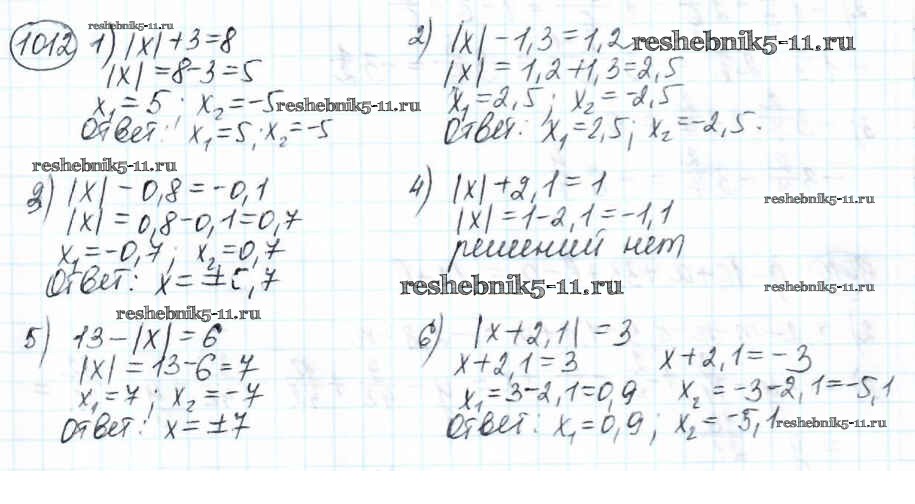 reshebnik5-11.ru
1012 1) |x|+3=8
|x|=8-3=5
x₁=5; x₂=-5 reshebnik5-11.ru
Ответ: x₁=5; x₂=-5
2) |x|-1,3=1,2 reshebnik5-11.ru
|x|=1,2+1,3=2,5
x₁=2,5; x₂=-2,5
Ответ: x₁=2,5; x₂=-2,5.
reshebnik5-11.ru
3) |x|-0,8=-0,1
|x|=0,8-0,1=0,7
x₁=-0,7; x₂=0,7
Ответ: x=±0,7
4) |x|+2,1=1
reshebnik5-11.ru
|x|=1-2,1=-1,1
решений нет
reshebnik5-11.ru reshebnik5-11.ru
reshebnik5-11.ru
5) 13-|x|=6
|x|=13-6=7
x₁=7; x₂=-7
Ответ: x=±7
6) |x+2,1|=3
x+2,1=3 x+2,1=-3
x₁=3-2,1=0,9 x₂=-3-2,1=-5,1
Ответ: x₁=0,9; x₂=-5,1 reshebnik5-11.ru